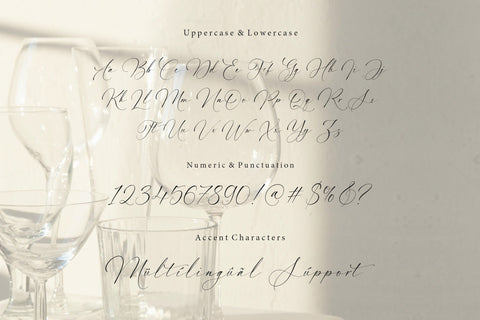 Uppercase & Lowercase
Aa Bb Cc Dd Ee Ff Gg Hh Ii Jj
Kk Ll Mm Nn Oo Pp Qq Rr Ss
Tt Uu Vv Ww Xx Yy Zz
Numeric & Punctuation
1234567890!@#$%&?
Accent Characters
Múltilingúál Súpport